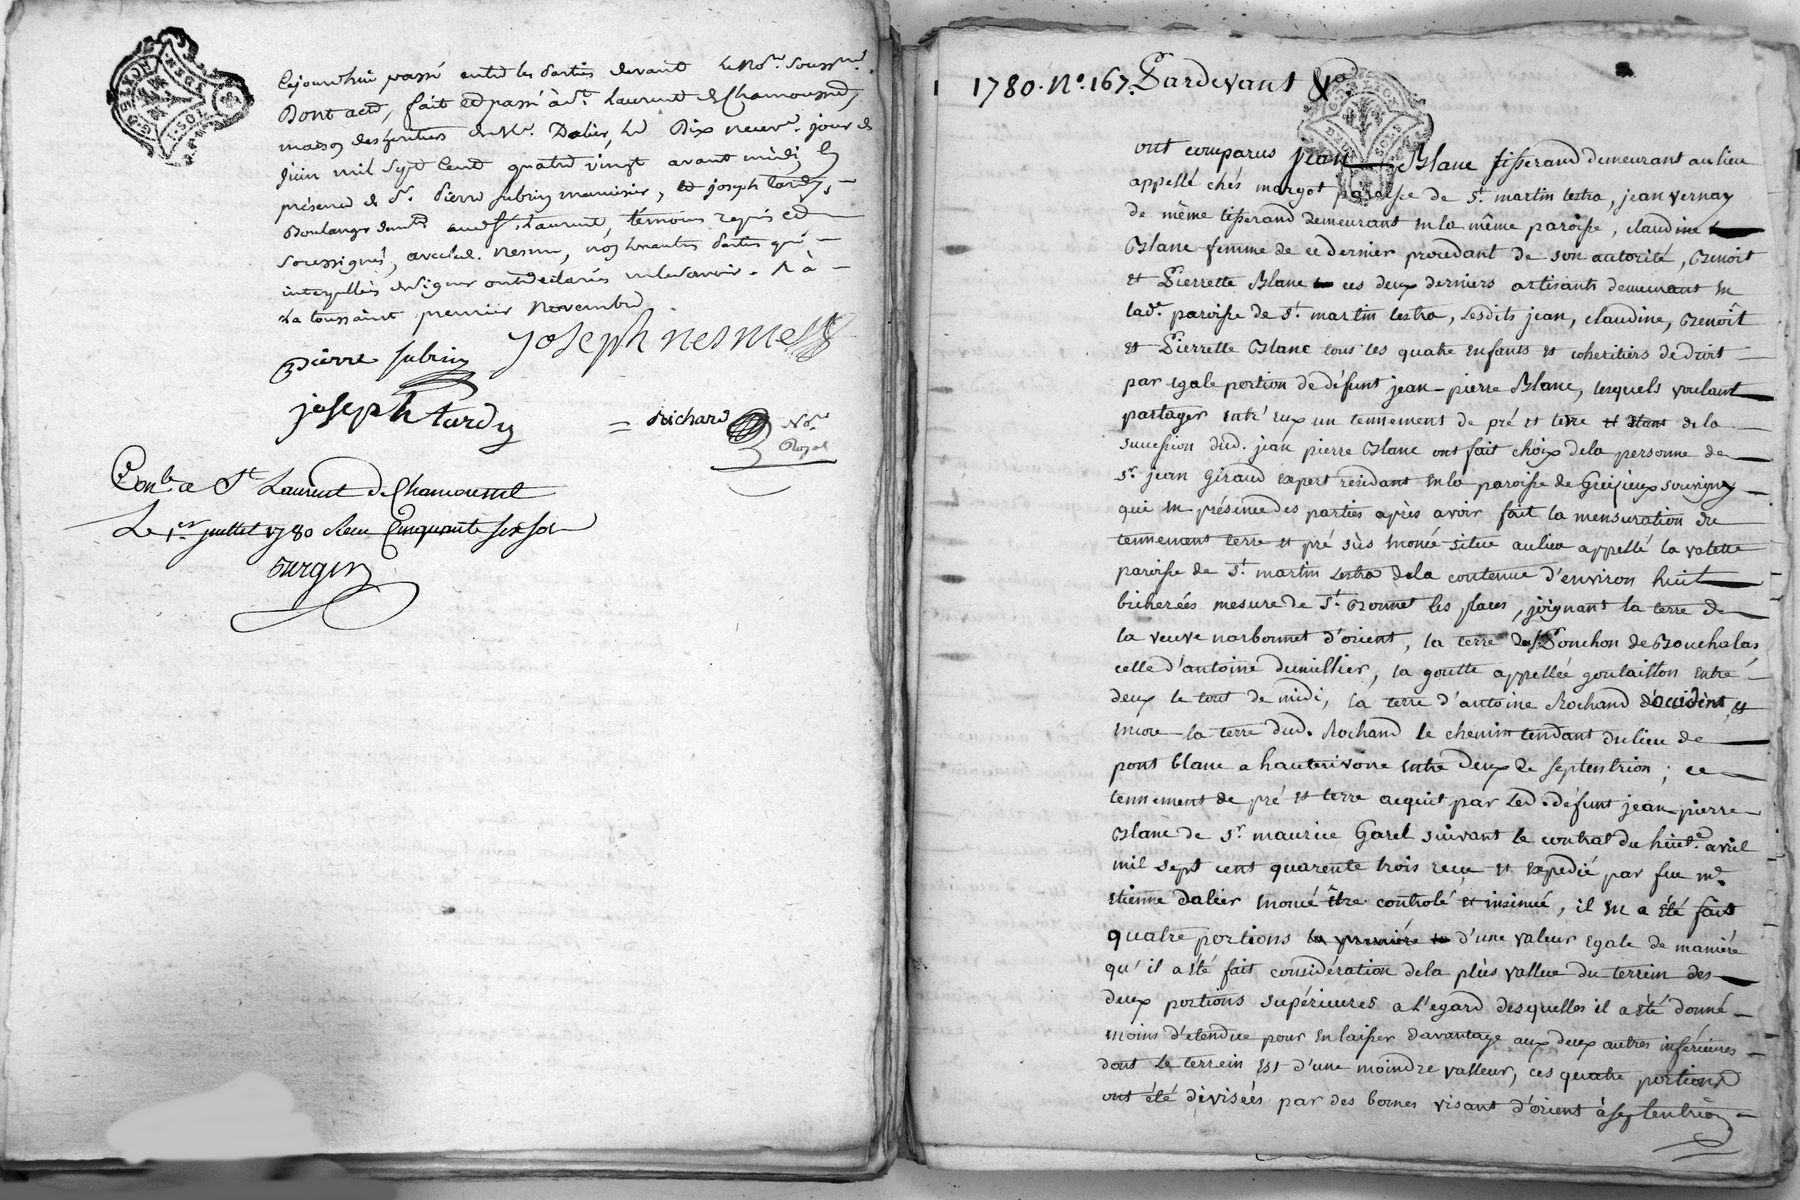 cejourdhui passé entre les parties devant le No.re soussné.
Dont acte, fait et passé à St. Laurent de Chamousset,
maison des heritiers de Me. Dalier, le dix neuve. jour de
juin mil sept cent quatre vingt avant midi, en
présence de Sr. pierre subrin menuisier, et joseph tardy,
Boulanger dud. St. Laurent, témoins requis et
soussignés, avec led. nesme, non les autres parties qui
interpellées de signer ont déclarés ne le savoir. R à
La toussaint premier Novembre
pierre subrin joseph nesme
joseph tardy
= Richard No.re
Royal
Conle. a St Laurent de Chamousset
Le 1.er juillet 1780 Reçu Cinquante six sols
1780. No. 167. Pardevant &a.
ont comparus jean Blanc tisserand demeurant au lieu
appellé chés margot paroisse de St. martin lestra, jean vernay
de même tisserand demeurant en la même paroisse, claudine
Blanc femme de ce dernier procedant de son autorité, Benoit
et Pierrette Blanc ces deux derniers artisants demeurant en
lad.e paroisse de St. martin lestra, lesdits jean, claudine, Benoît
et Pierrette Blanc tous les quatre enfants et coheritiers de droit
par egale portion de défunt jean-pierre Blanc, lesquels voulant
partager entr'eux un tennement de pré et terre et étant de la
succession dud. jean pierre Blanc ont fait choix de la personne de
Sr. jean Giraud expert résidant en la paroisse de Greisieux souvigny
qui en présence des parties après avoir fait la mensuration du
tennement terre et pré sùs enoncé situé au lieu appellé la valette
paroisse de St. martin Lestra de la contenue d'environ huit
bicherées mesure de St. Bonnet les places, joignant la terre de
la veuve narbonnet d'orient, la terre de Sr. Ponchon de Bouchalas,
celle d'antoine dumillier, la goutte appellée goutaillon entre
deux le tout de midi, la terre d'antoine Rochand d'occident, et
encore la terre dud. Rochand le chemin tendant du lieu de
pont blanc a hauterivoire entre deux de septentrion; ce
tennement de pré et terre acquit par led. défunt jean pierre
Blanc de Sr. maurice Garel suivant le contrat du huit.e avril
mil sept cent quarente trois reçu et expedié par feu me.
etienne dalier enoncé être controlé et insinué, il en a été fait
quatre portions la première d'une valeur egale de maniere
qu'il a été fait considération de la plùs vallue du terrein des
deux portions supérieures a l'egard desquelles il a été donné
moins d'etendue pour en laisser davantage aux deux autres inférieures
dont le terrein est d'une moindre valleur, ces quatre portions
ont été divisées par des bornes visant d'orient à septentrion